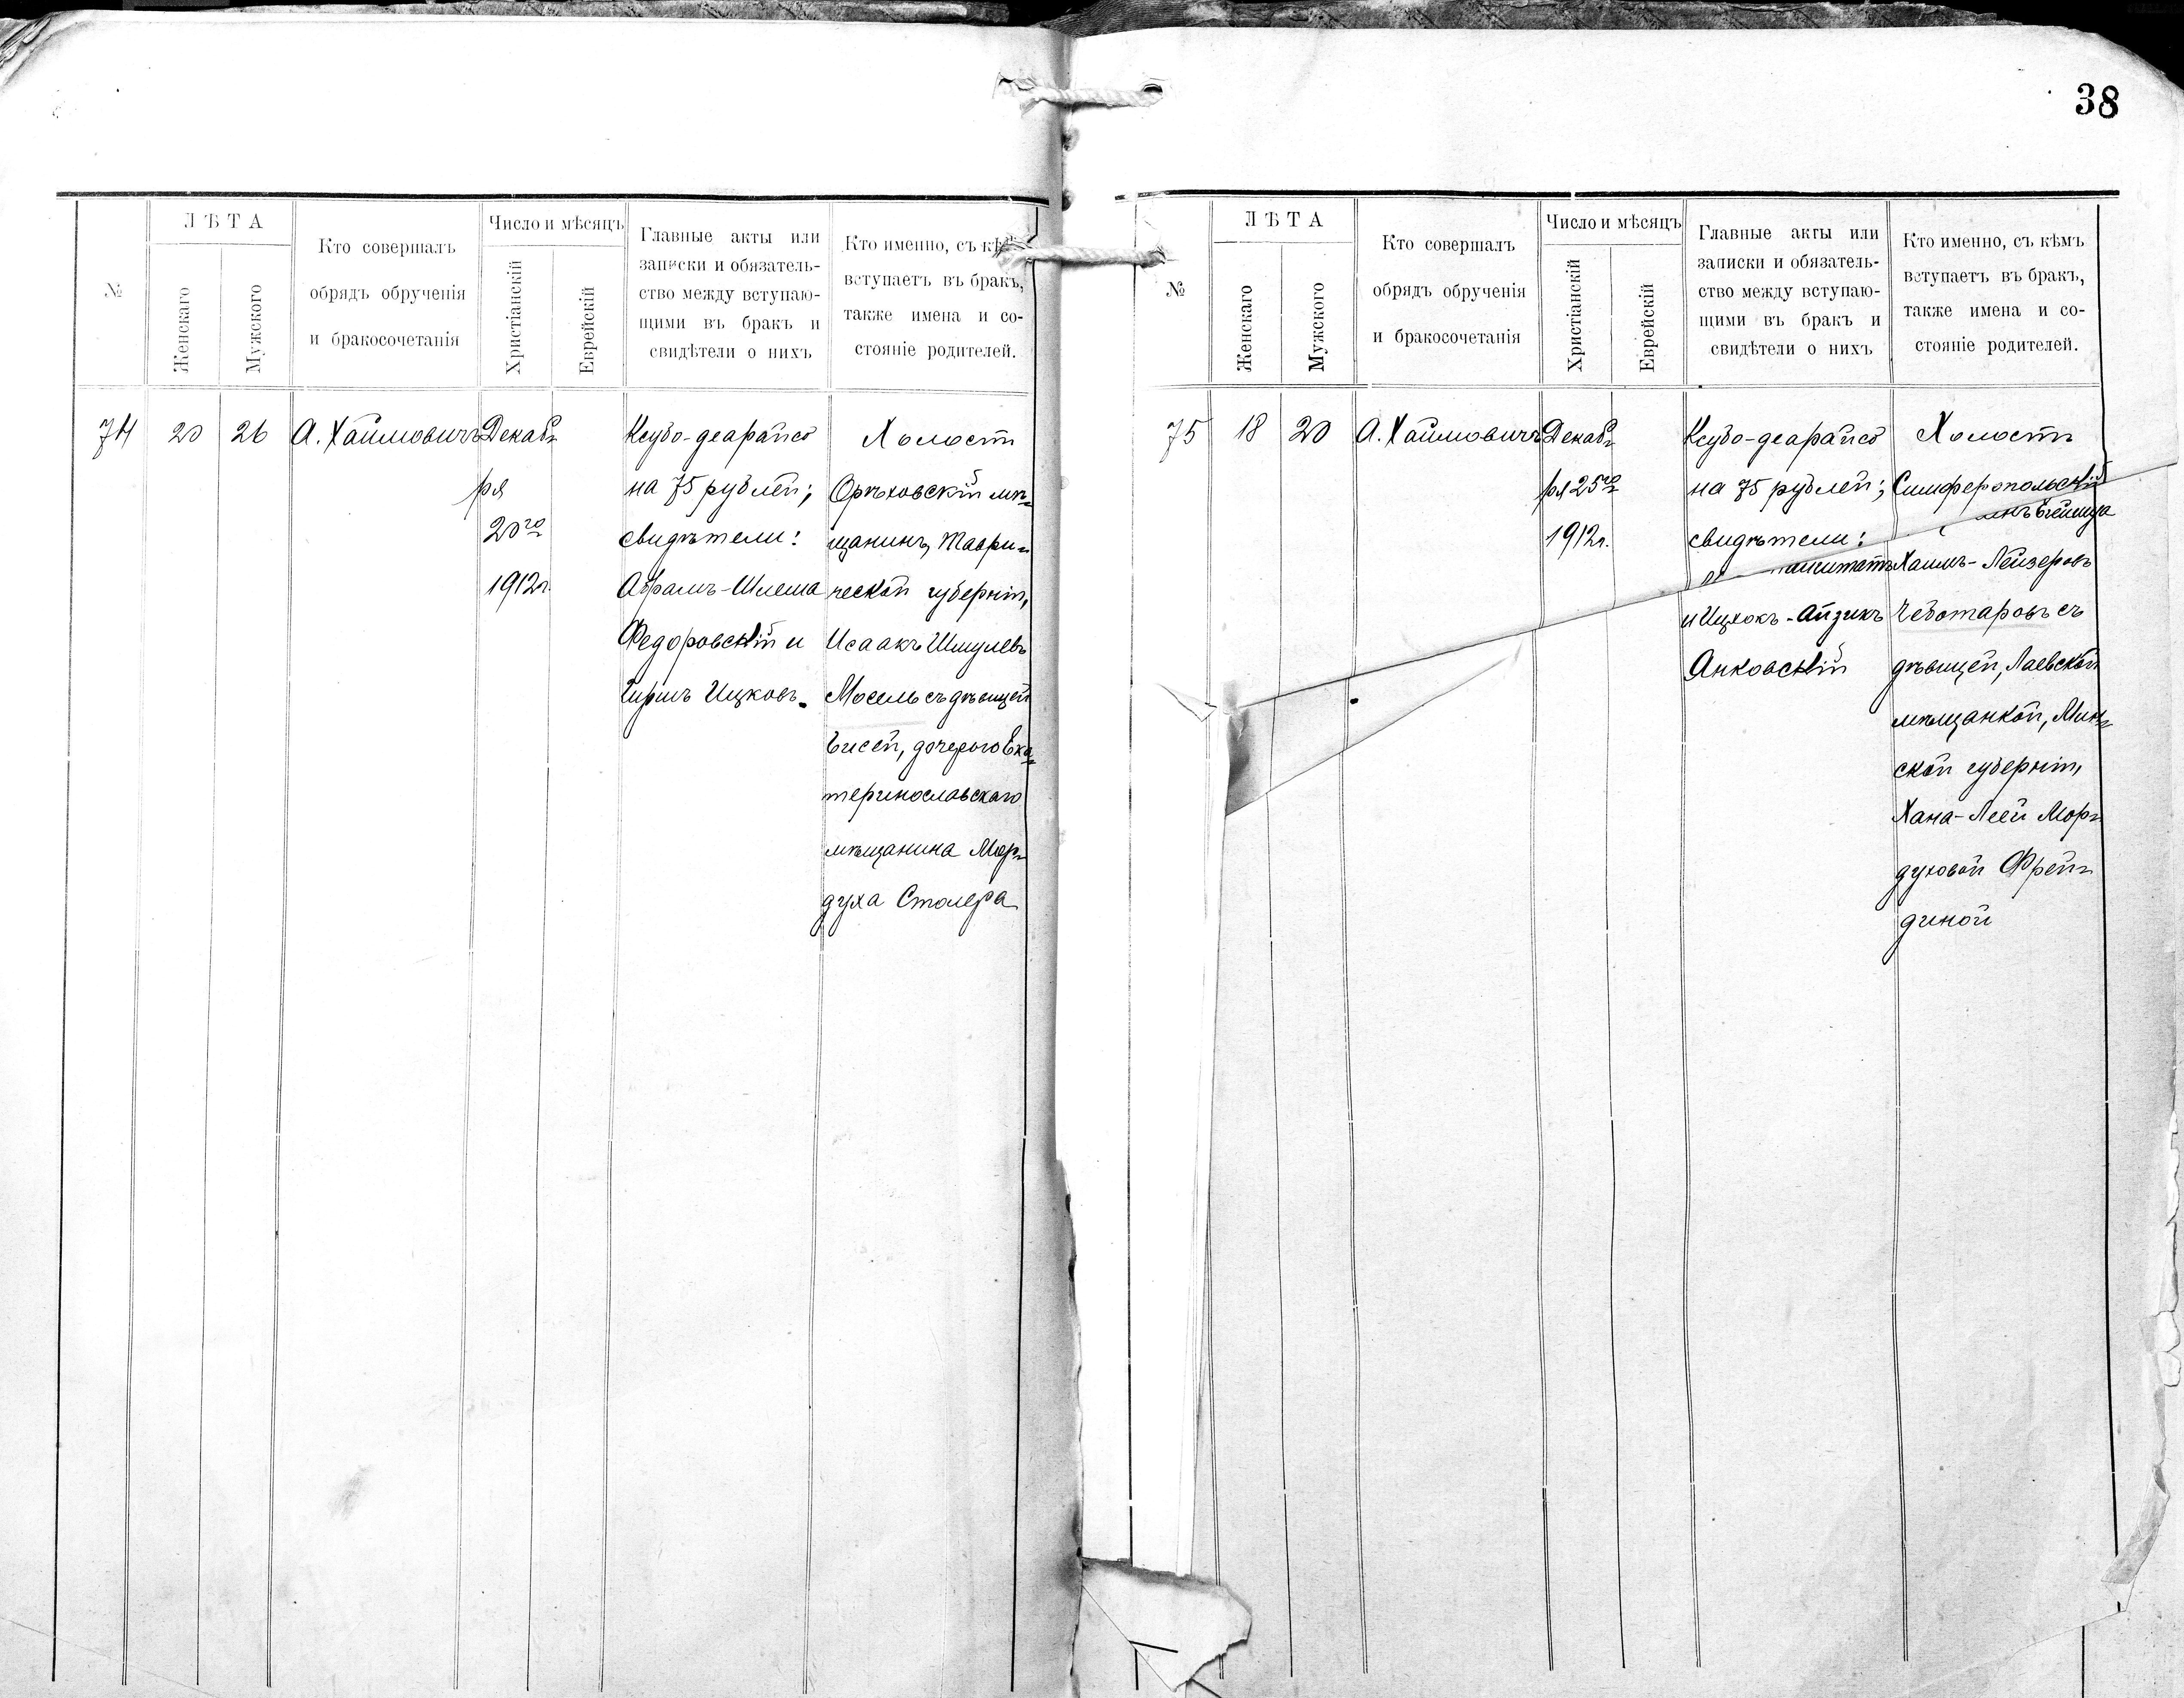 38
№
ЛѢТА
Женскаго
Мужского
Кто совершалъ
обрядъ обрученія
и бракосочетанія
Число и мѣсяцъ
Христіанскій
Еврейскій
Главные акты или
записки и обязатель-
ство между вступаю-
щими въ бракъ и
свидѣтели о нихъ
Кто именно, съ кѣмъ
вступаетъ въ бракъ,
также имена и со-
стояніе родителей.
74
20
26
А. Хаймовичъ
Декаб-
ря
20го
1912г.
Ксубо-деарайсо
на 75 рублей;
свидѣтели:
Абрамъ-Шлема
Федоровскій и
Гиршъ Ицковъ.
Холостъ
Орѣховскій мѣ-
щанинъ, Таври-
ческой губерніи,
Исаакъ Шмулевъ
Мосель съ дѣвицей
Бисей, дочерью Ека-
теринославскаго
мѣщанина Мор-
духа Столера
№
ЛѢТА
Женскаго
Мужского
Кто совершалъ
обрядъ обрученія
и бракосочетанія
Число и мѣсяцъ
Христіанскій
Еврейскій
Главные акты или
записки и обязатель-
ство между вступаю-
щими въ бракъ и
свидѣтели о нихъ
Кто именно, съ кѣмъ
вступаетъ въ бракъ,
также имена и со-
стояніе родителей.
75
18
20
А. Хаймовичъ
Декаб-
ря 25го
1912г.
Ксубо-деарайсо
на 75 рублей;
свидѣтели:
и Ицхокъ-Айзикъ
Анковскій
Холостъ
Симферопольскій
Хаимъ-Лейзеровъ
Чеботаровъ съ
дѣвицей, Лаевской
мѣщанкой, Мин-
ской губерніи,
Хана-Леей Мор-
духовой Фрей-
диной